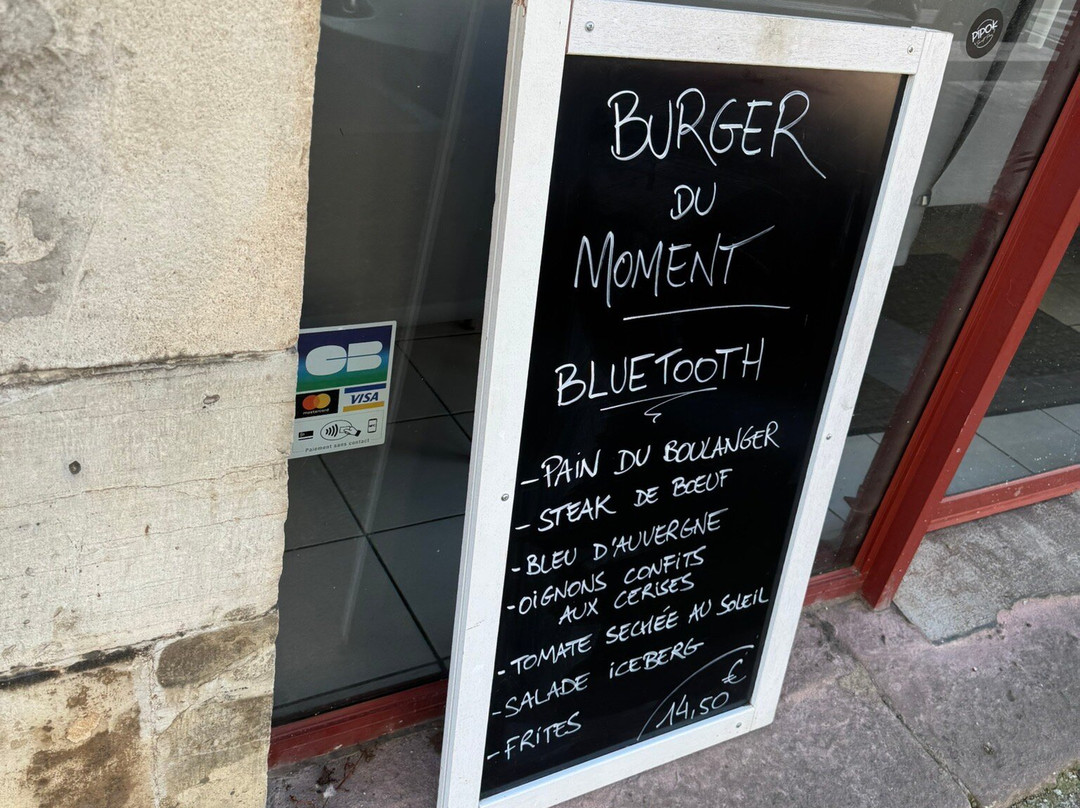 PIPOK
BURGER
DU
MOMENT
BLUETOOTH
- PAIN DU BOULANGER
- STEAK DE BŒUF
- BLEU D'AUVERGNE
- OIGNONS CONFITS
AUX CERISES
- TOMATE SECHÉE AU SOLEIL
- SALADE ICEBERG
- FRITES
14,50 €
CB
mastercard
VISA
Paiement sans contact